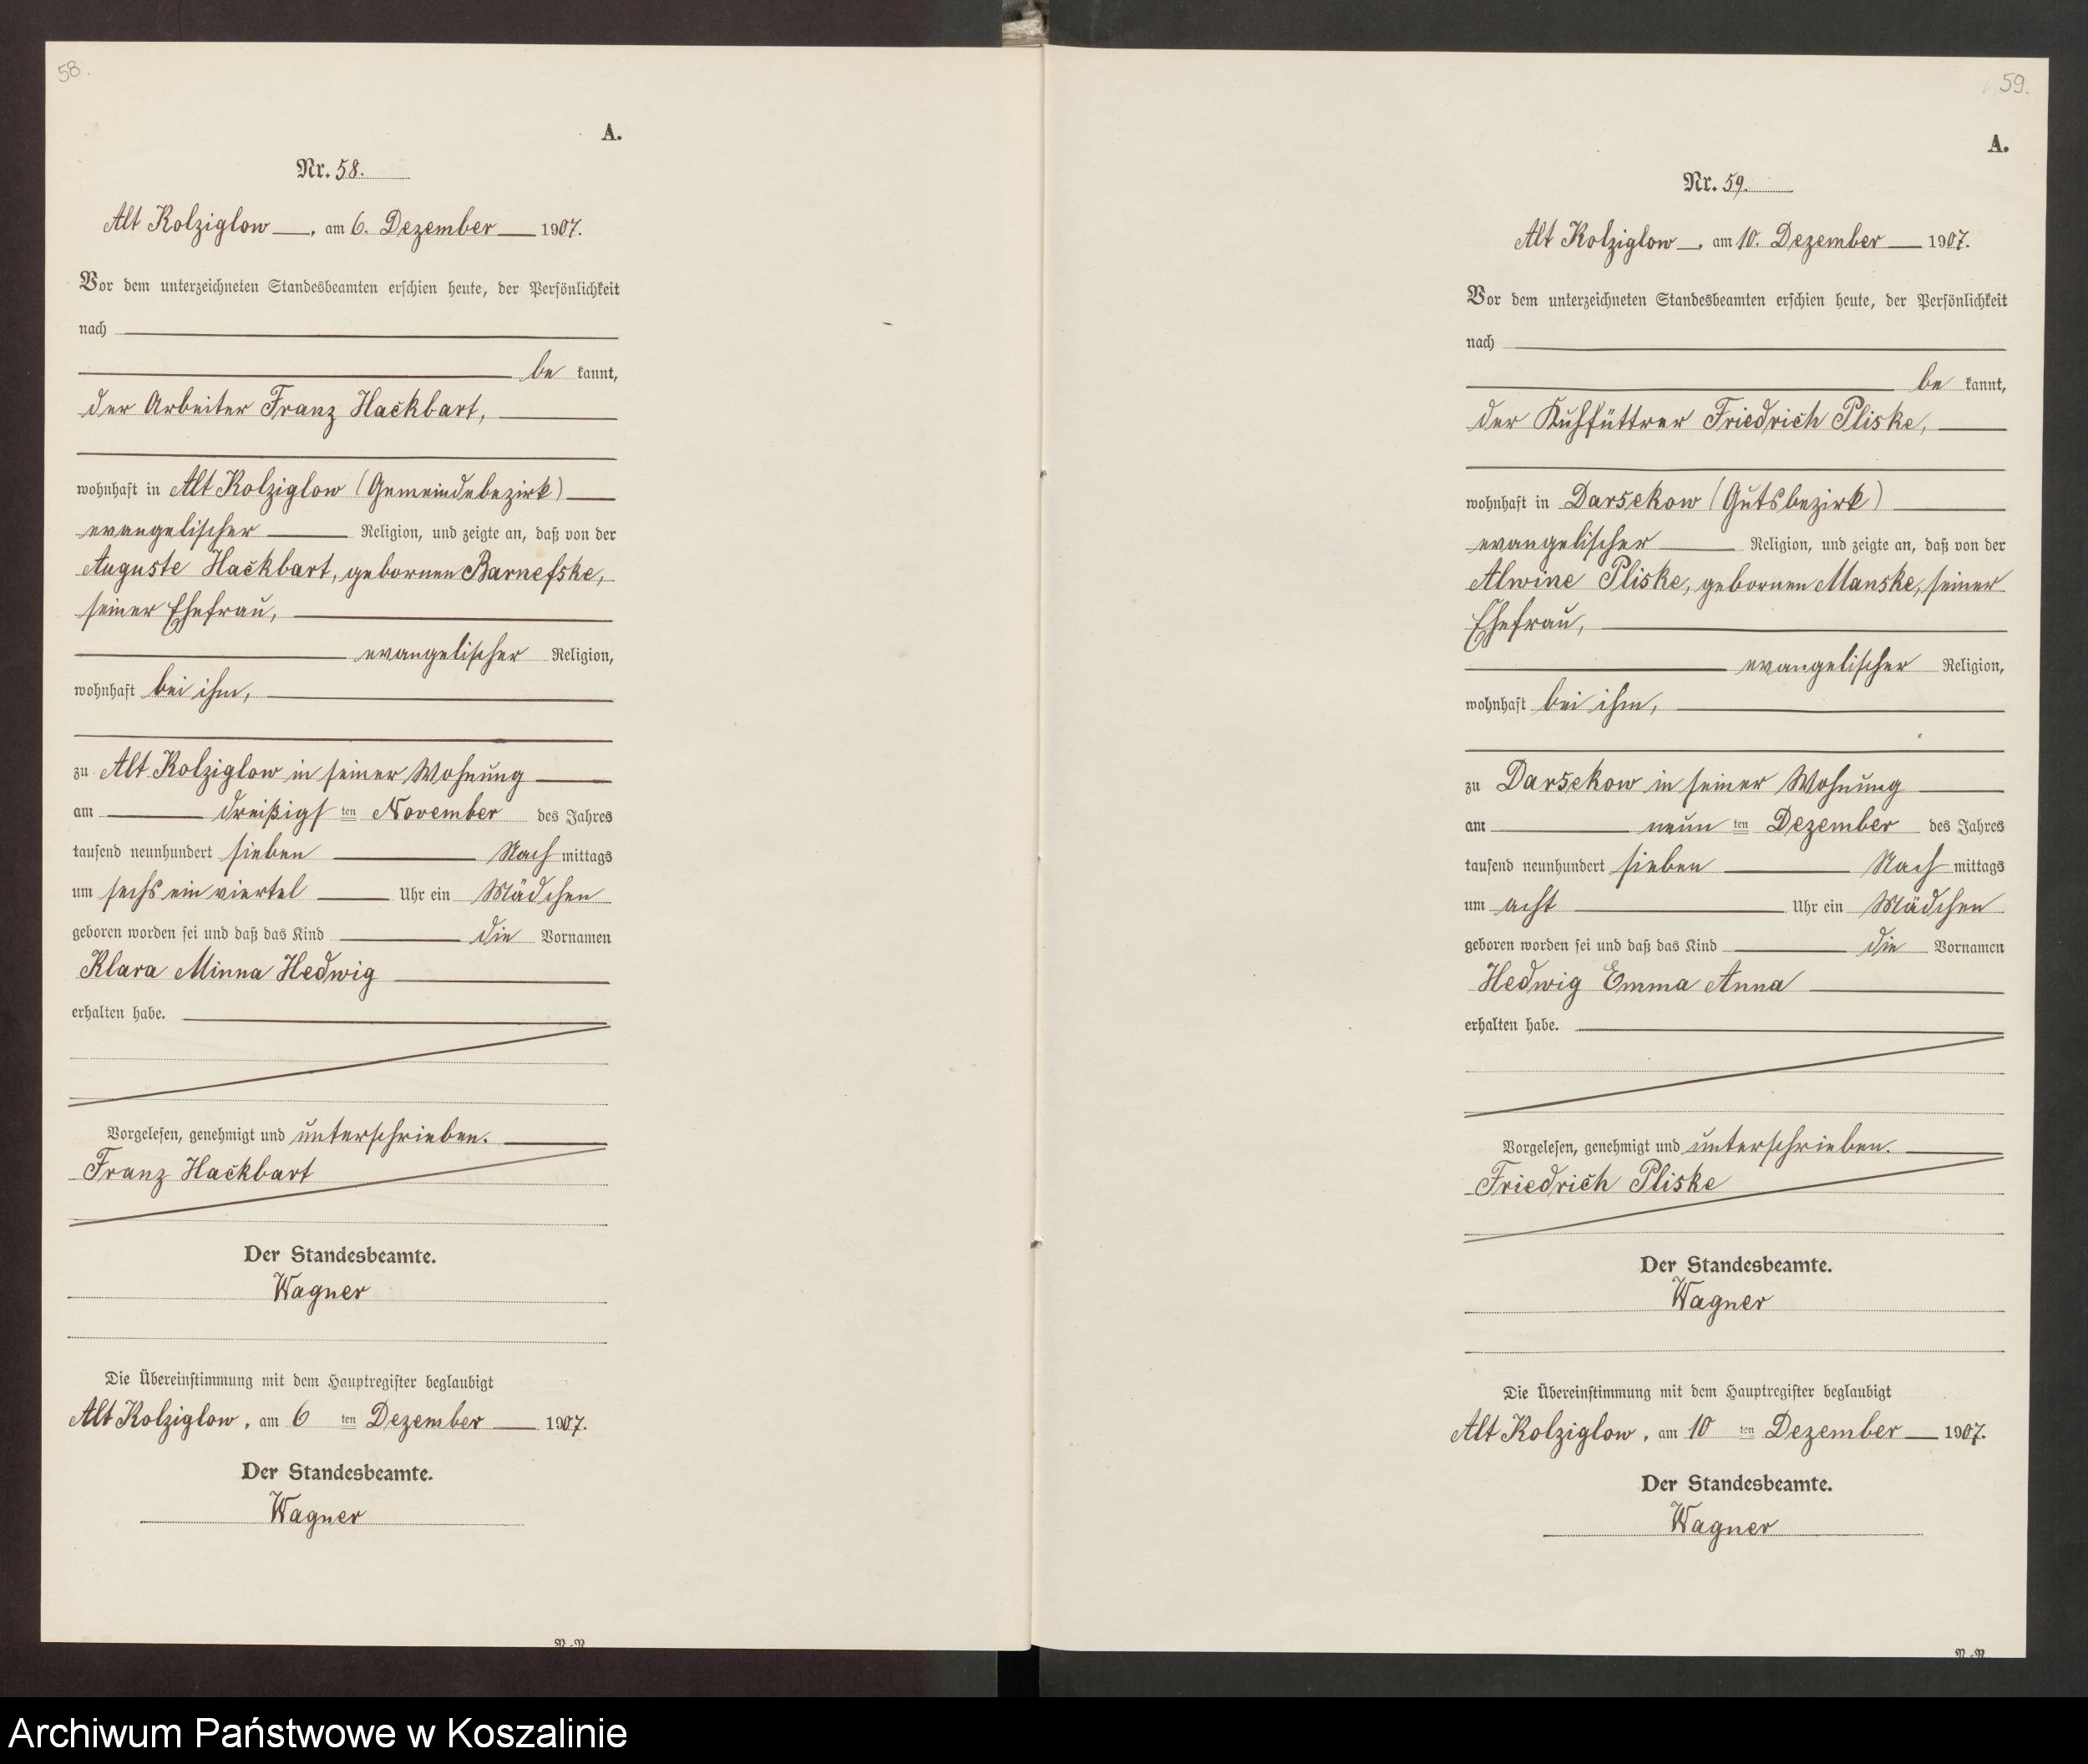 58.
A.
Nr. 58.
Alt Kolziglow, am 6. Dezember 1907.
Vor dem unterzeichneten Standesbeamten erschien heute, der Persönlichkeit
nach
be kannt,
der Arbeiter Franz Hackbart,
wohnhaft in Alt Kolziglow (Gemeindebezirk)
evangelischer Religion, und zeigte an, daß von der
Auguste Hackbart, gebornen Barnefske,
seiner Ehefrau,
evangelischer Religion,
wohnhaft bei ihm,
zu Alt Kolziglow in seiner Wohnung
am dreißigsten November des Jahres
tausend neunhundert sieben Nachmittags
um sechs ein viertel Uhr ein Mädchen
geboren worden sei und daß das Kind die Vornamen
Klara Minna Hedwig
erhalten habe.
Vorgelesen, genehmigt und unterschrieben.
Franz Hackbart
Der Standesbeamte.
Wagner
Die Übereinstimmung mit dem Hauptregister beglaubigt
Alt Kolziglow, am 6 ten Dezember 1907.
Der Standesbeamte.
Wagner
59.
A.
Nr. 59.
Alt Kolziglow, am 10. Dezember 1907.
Vor dem unterzeichneten Standesbeamten erschien heute, der Persönlichkeit
nach
be kannt,
der Kuhfüttrer Friedrich Pliske,
wohnhaft in Darsekow (Gutsbezirk)
evangelischer Religion, und zeigte an, daß von der
Alwine Pliske, gebornen Manske, seiner
Ehefrau,
evangelischer Religion,
wohnhaft bei ihm,
zu Darsekow in seiner Wohnung
am neun ten Dezember des Jahres
tausend neunhundert sieben Nachmittags
um acht Uhr ein Mädchen
geboren worden sei und daß das Kind die Vornamen
Hedwig Emma Anna
erhalten habe.
Vorgelesen, genehmigt und unterschrieben.
Friedrich Pliske
Der Standesbeamte.
Wagner
Die Übereinstimmung mit dem Hauptregister beglaubigt
Alt Kolziglow, am 10 ten Dezember 1907.
Der Standesbeamte.
Wagner
Archiwum Państwowe w Koszalinie